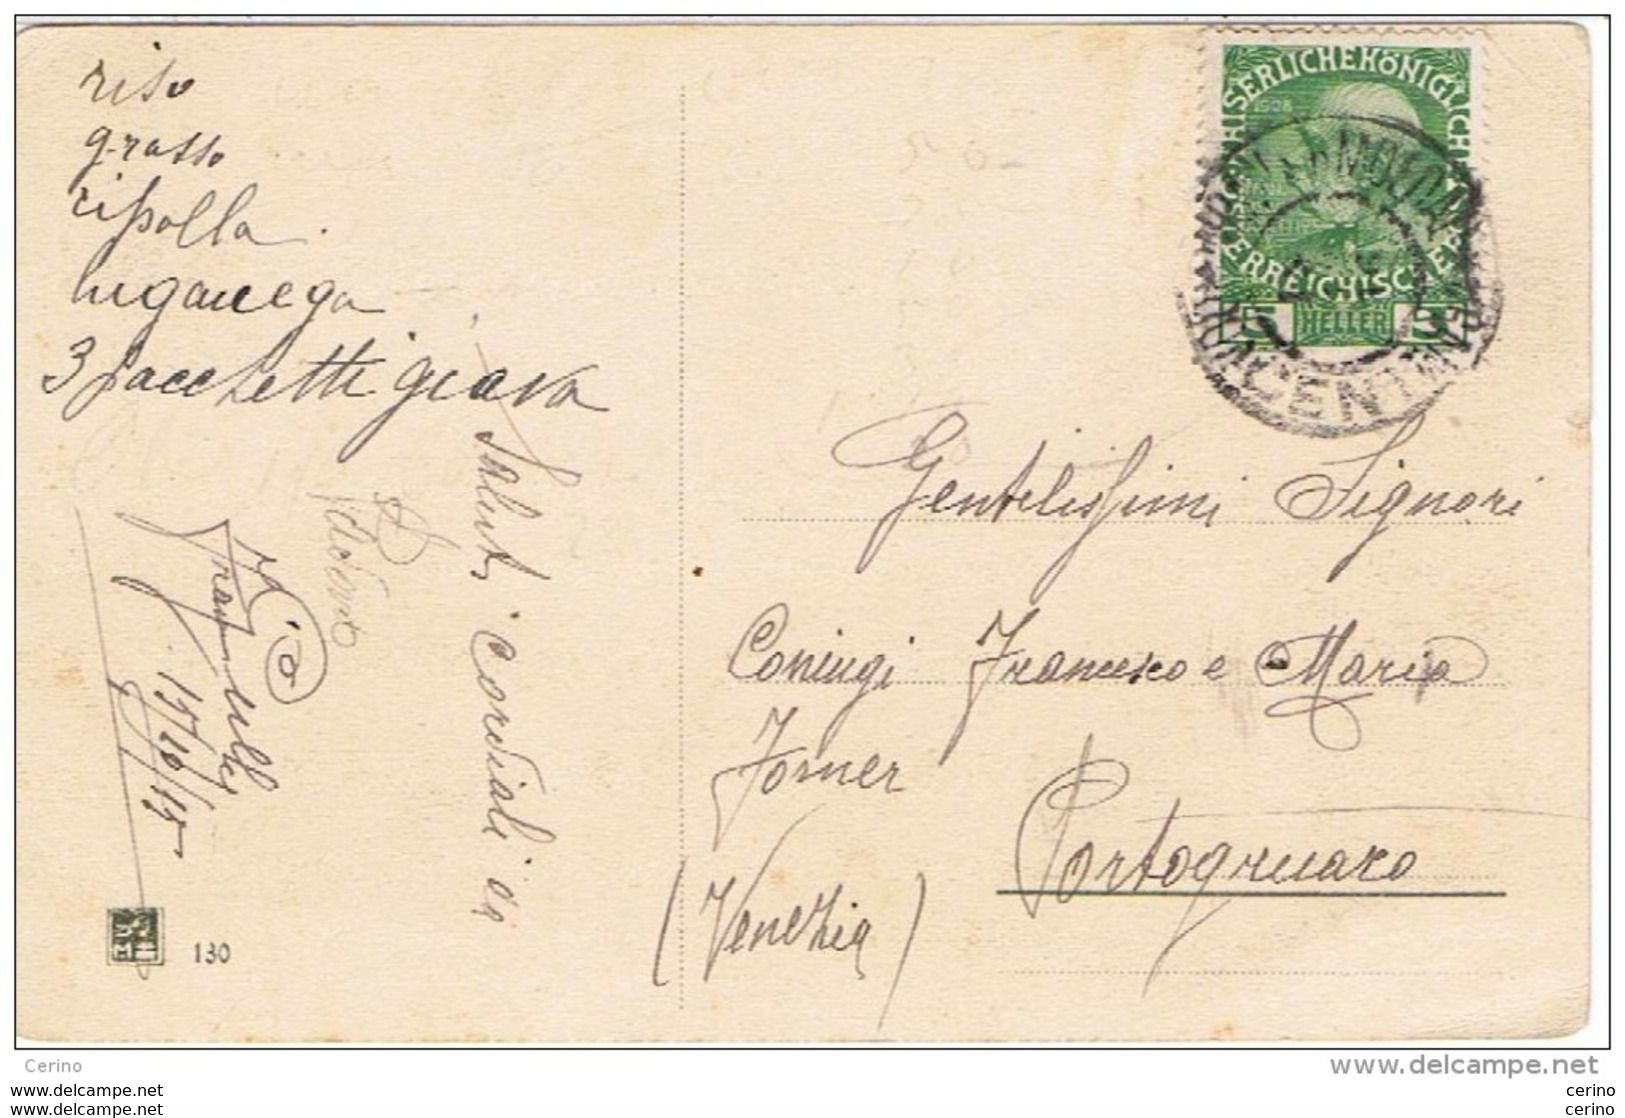 riso
grasso
ripolla
luganega
3 sacchetti giava
Saluti cordiali da
Zio
15/10/15
130
1908
KAISERLICHEKÖNIGLICHE
ÖSTERREICHISCHE
5 HELLER 5
VINCENTI
Gentilissimi Signori
Coniugi Francesco e Maria
Forner
Portogruaro
(Venezia)
Cerino
www.delcampe.net
cerino
cerino
cerino
cerino